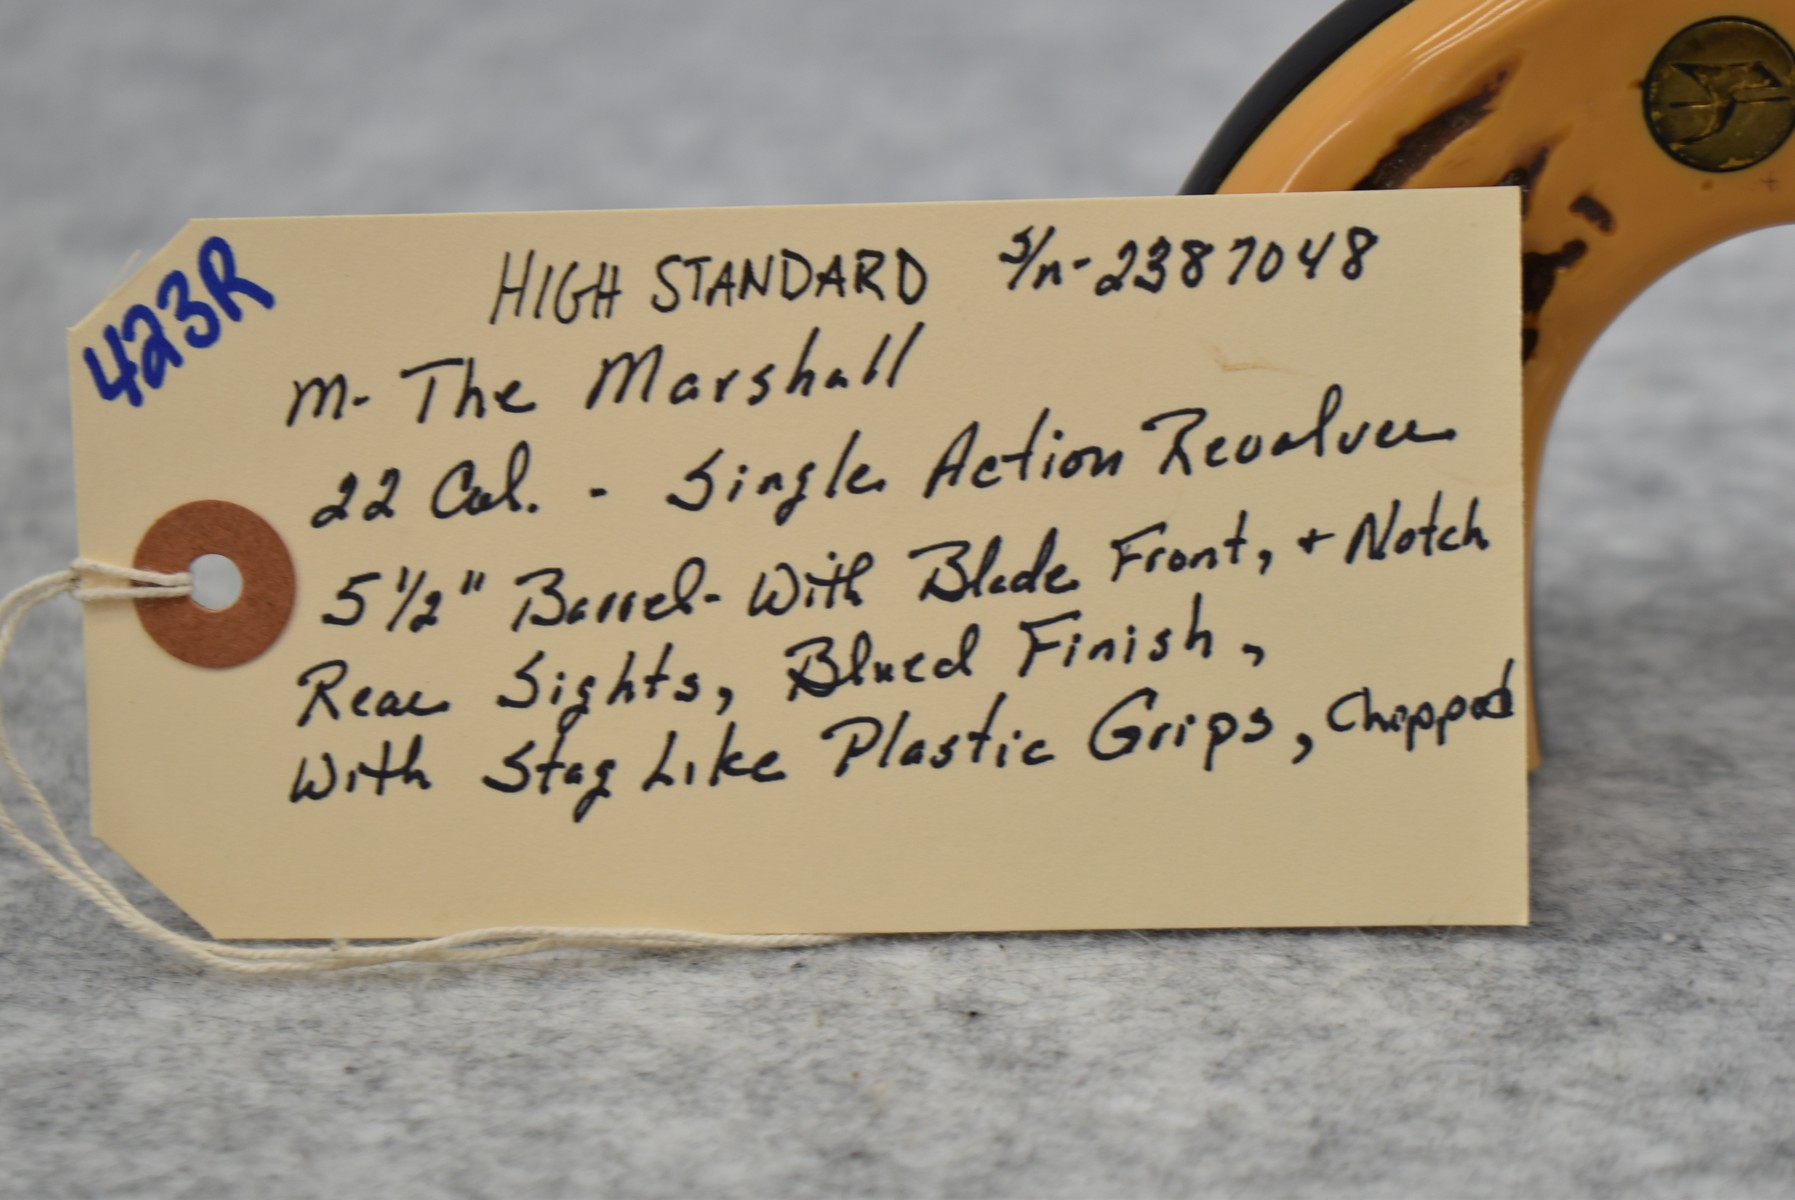 423R
HIGH STANDARD S/n-2387048
M- The Marshall
22 Cal. - Single Action Revolver
5 1/2" Barrel- With Blade Front, + Notch
Rear Sights, Blued Finish,
With Stag Like Plastic Grips, Chipped